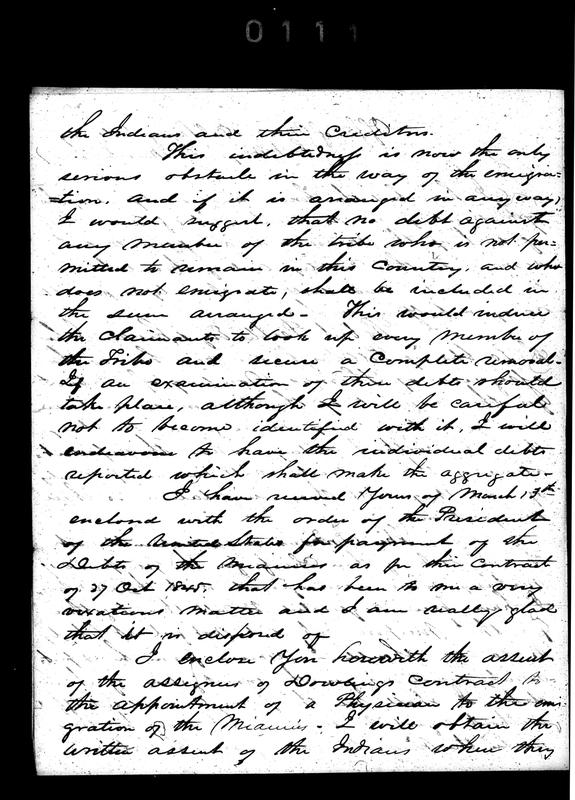 0111
the Indians and their Creditors.
This indebtedness is now the only
serious obstacle in the way of the emigra=
=tion. and if it is arranged in any way,
I would suggest, that no debt against
any member of the tribe who is not per=
mitted to remain in this Country, and who
does not emigrate, shall be included in
the sum arranged - This would induce
the claimants to look up every member of
the Tribe and secure a complete removal.
If an examination of these debts should
take place, although I will be careful
not to become identified with it, I will
endeavour to have the individual debts
reported which shall make the aggregate -
I have received Yours of March 13th
enclosed with the order of the President
of the United States for payment of the
Debts of the Miamies as per their Contract
of 27 Oct 1845. that has been to me a very
vexatious matter and I am really glad
that it is disposed of
I enclose You herewith the assent
of the assignees of Dowlings Contract to
the appointment of a Physician to the emi
gration of the Miamies - I will obtain the
written assent of the Indians when they